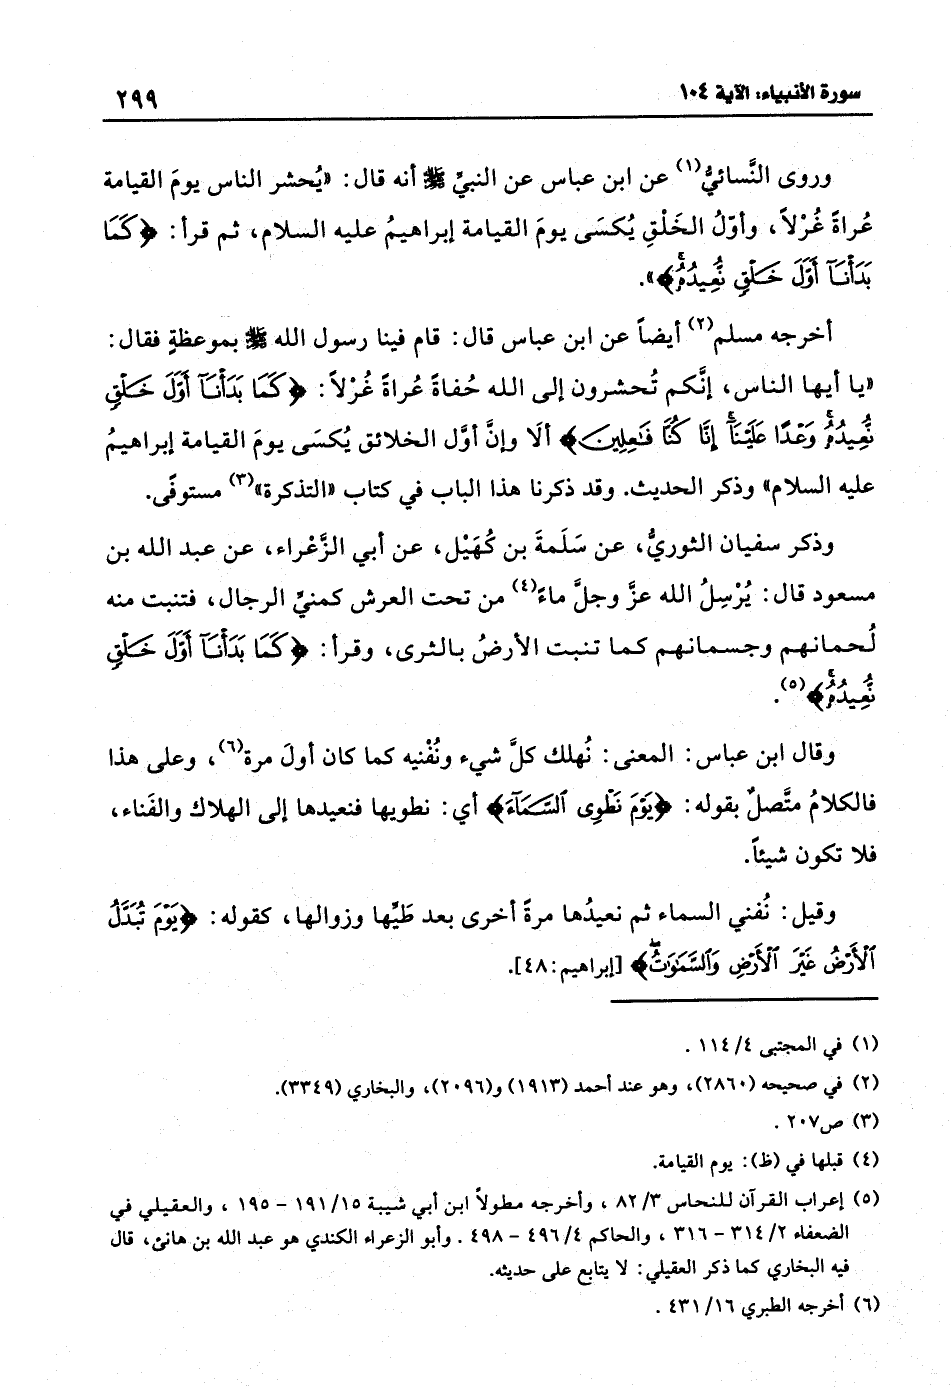 سورة الأنبياء: الآية ١٠٤
٢٩٩
وروى النَّسائيُّ(١) عن ابن عباس عن النبيِّ ﷺ أنه قال: «يُحشر الناس يومَ القيامة
عُراةً غُرْلاً، وأوّلُ الخَلْقِ يُكسَى يومَ القيامة إبراهيمُ عليه السلام، ثم قرأ: ﴿كَمَا
بَدَأْنَآ أَوَّلَ خَلْقٍ نُّعِيدُهُۥۚ﴾».
أخرجه مسلم(٢) أيضاً عن ابن عباس قال: قام فينا رسول الله ﷺ بموعظةٍ فقال:
«يا أيها الناس، إنَّكم تُحشرون إلى الله حُفاةً عُراةً غُرْلاً: ﴿كَمَا بَدَأْنَآ أَوَّلَ خَلْقٍ
نُّعِيدُهُۥۚ وَعْدًا عَلَيْنَآۚ إِنَّا كُنَّا فَٰعِلِينَ﴾ ألَا وإنَّ أوَّل الخلائق يُكسَى يومَ القيامة إبراهيمُ
عليه السلام» وذكر الحديث. وقد ذكرنا هذا الباب في كتاب «التذكرة»(٣) مستوفًى.
وذكر سفيان الثوريُّ، عن سَلَمةَ بن كُهَيْل، عن أبي الزَّعْراء، عن عبد الله بن
مسعود قال: يُرْسِلُ الله عزَّ وجلَّ ماءً(٤) من تحت العرش كمنيِّ الرجال، فتنبت منه
لُحمانهم وجسمانهم كما تنبت الأرضُ بالثرى، وقرأ: ﴿كَمَا بَدَأْنَآ أَوَّلَ خَلْقٍ
نُّعِيدُهُۥۚ﴾(٥).
وقال ابن عباس: المعنى: نُهلك كلَّ شيء ونُفْنيه كما كان أولَ مرة(٦)، وعلى هذا
فالكلامُ متَّصلٌ بقوله: ﴿يَوْمَ نَطْوِى ٱلسَّمَآءَ﴾ أي: نطويها فنعيدها إلى الهلاك والفَناء،
فلا تكون شيئاً.
وقيل: نُفني السماء ثم نعيدُها مرةً أخرى بعد طَيِّها وزوالها، كقوله: ﴿يَوْمَ تُبَدَّلُ
ٱلْأَرْضُ غَيْرَ ٱلْأَرْضِ وَٱلسَّمَٰوَٰتُۖ﴾ [إبراهيم:٤٨].
(١) في المجتبى ١١٤/٤ .
(٢) في صحيحه (٢٨٦٠)، وهو عند أحمد (١٩١٣) و(٢٠٩٦)، والبخاري (٣٣٤٩).
(٣) ص٢٠٧ .
(٤) قبلها في (ظ): يوم القيامة.
(٥) إعراب القرآن للنحاس ٨٢/٣ ، وأخرجه مطولاً ابن أبي شيبة ١٩١/١٥ - ١٩٥ ، والعقيلي في
الضعفاء ٣١٤/٢ - ٣١٦ ، والحاكم ٤٩٦/٤ - ٤٩٨ . وأبو الزعراء الكندي هو عبد الله بن هانئ، قال
فيه البخاري كما ذكر العقيلي: لا يتابع على حديثه.
(٦) أخرجه الطبري ٤٣١/١٦ .